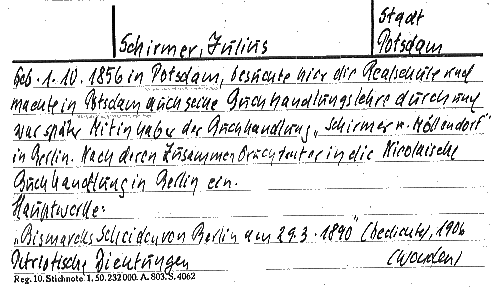 Stadt
Schirmer, Julius Potsdam
Geb. 1. 10. 1856 in Potsdam, besuchte hier die Realschule und
machte in Potsdam auch seine Buchhandlungslehre durch und
war später Mitinhaber der Buchhandlung „Schirmer u. Möllendorf"
in Berlin. Nach deren Zusammenbruch trat er in die Nicolaische
Buchhandlung in Berlin ein.
Hauptwerke:
„Bismarcks Scheiden von Berlin am 29.3.1890" (Gedichte), 1906
Dichtungen
Reg. 10. Stichnote 1. 50. 232000. A. 803. S. 4062